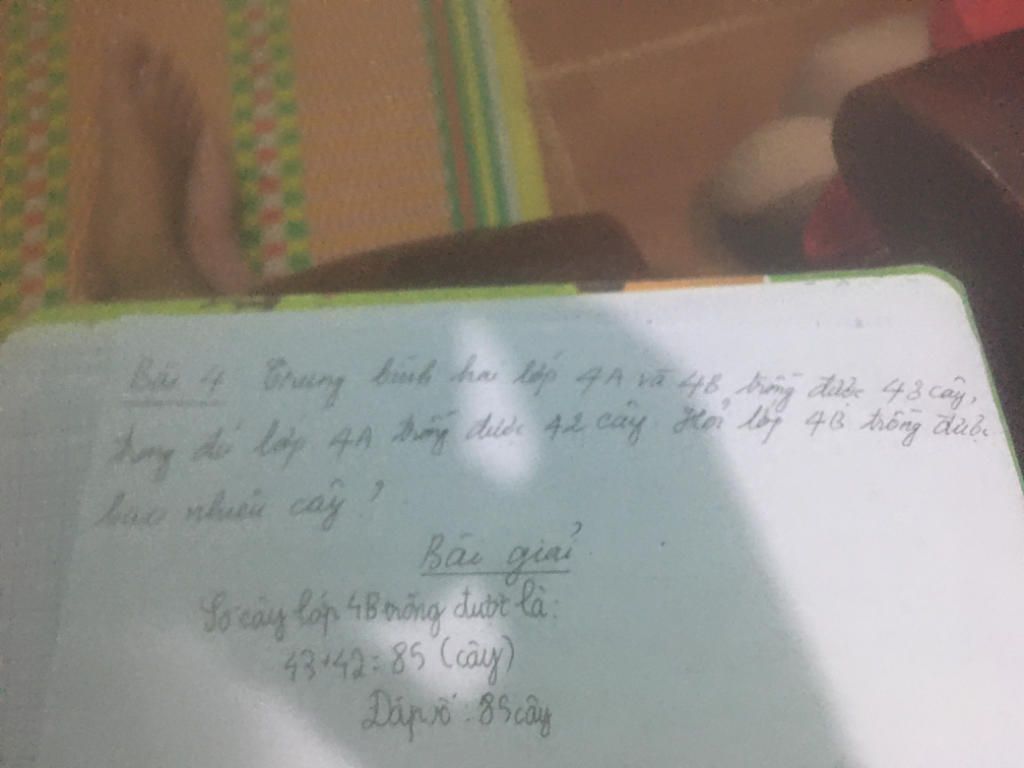 Bài 4 Trung bình hai lớp 4A và 4B trồng được 43 cây,
trong đó lớp 4A trồng được 42 cây. Hỏi lớp 4B trồng được
bao nhiêu cây?
Bài giải
Số cây lớp 4B trồng được là:
43+42=85 (cây)
Đáp số: 85 cây